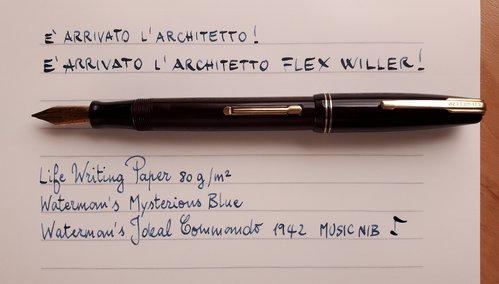 È ARRIVATO L'ARCHITETTO!
È ARRIVATO L'ARCHITETTO FLEX WILLER!
Life Writing Paper 80 g/m²
Waterman's Mysterious Blue
Waterman's Ideal Commando 1942 MUSIC NIB ♪